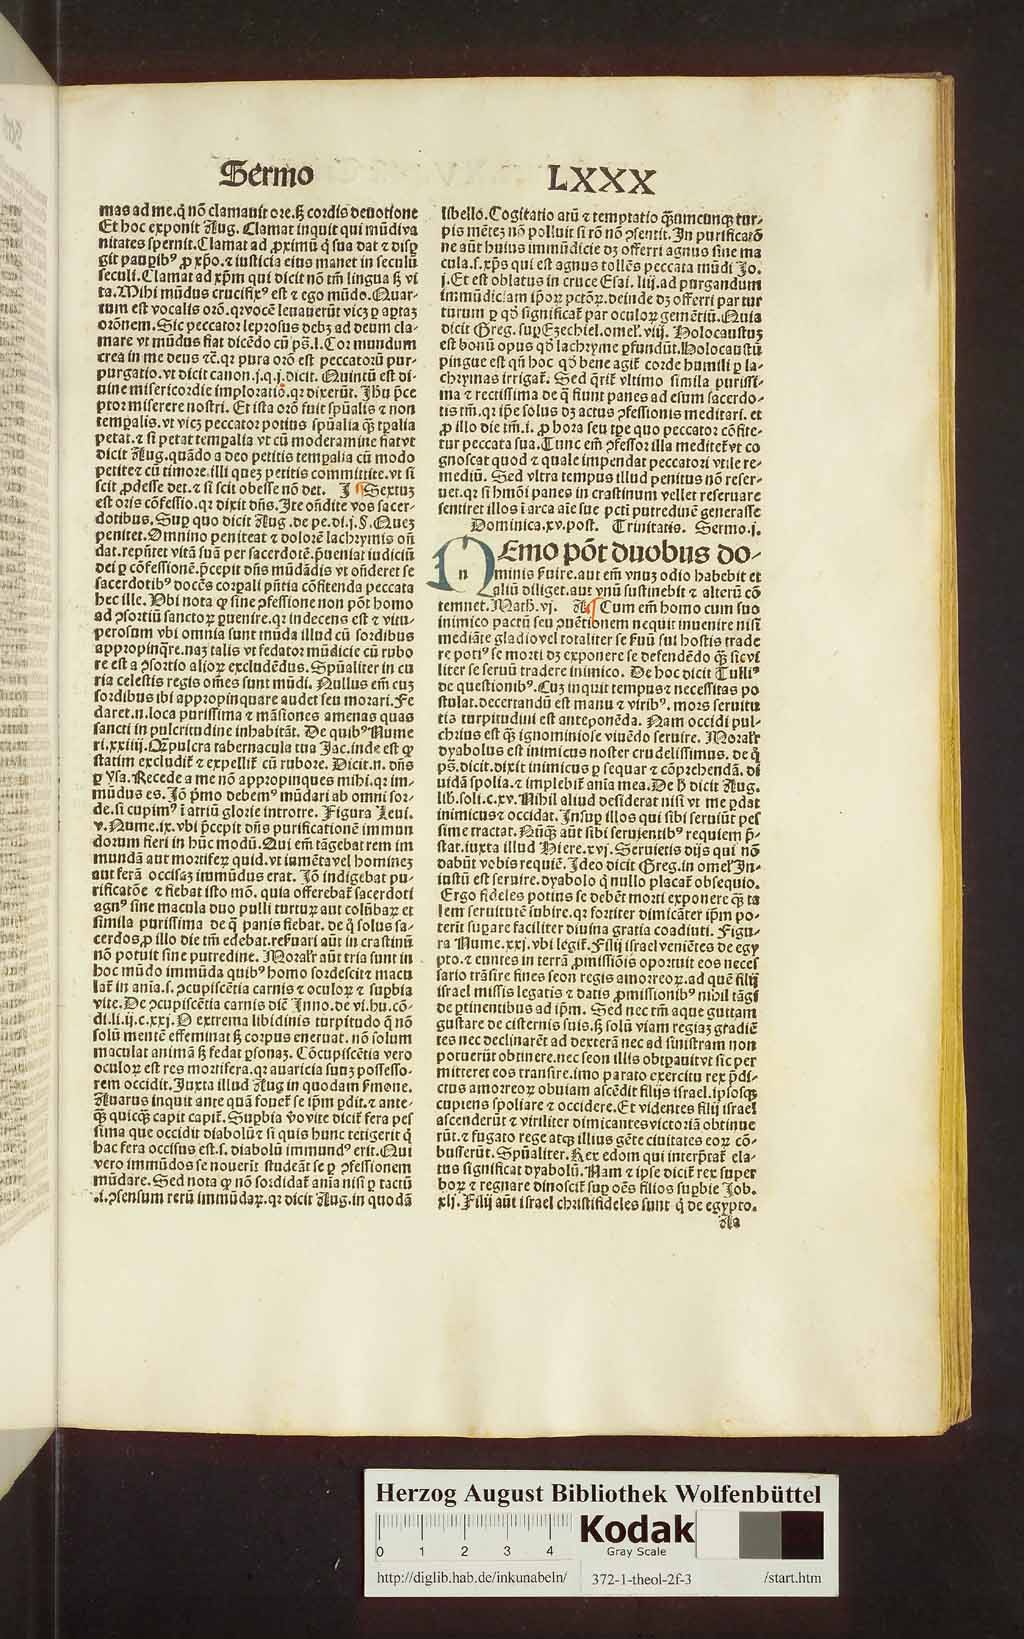 Sermo LXXX
mas ad me. q̃ nõ clamauit ore. sꝫ cordis deuotione
Et hoc exponit Aug. Clamat inquit qui mũdi va
nitates spernit. Clamat ad ꝓximũ q̃ sua dat ⁊ disꝑ
git pauꝑibꝰ ꝓ xp̃o. ⁊ iusticia eius manet in seculũ
seculi. Clamat ad xp̃m qui dicit nõ tm̃ lingua sꝫ vi
ta. Mihi mũdus crucifixꝰ est ⁊ ego mũdo. Quar-
tum est vocalis orõ. qꝛ vocẽ leuauerũt vicꝫ ꝑ aꝑtaꝫ
orõnem. Sic peccator leprosus debꝫ ad deum cla-
mare vt mũdus fiat dicẽdo cũ ps̃. l. Cor mundum
crea in me deus ⁊c̃. qꝛ pura orõ est peccatorũ pur-
purgatio. vt dicit canon. j. q. j. dicit. Quintũ est di-
uine misericordie imploratio. qꝛ dixerũt. Jhũ p̃ce
ptor miserere nostri. Et ista orõ fuit spũalis ⁊ non
temꝑalis. vt vicꝫ peccator potius spũalia q̃ꝫ tꝑalia
petat. ⁊ si petat temꝑalia vt cũ moderamine fiat vt
dicit Aug. quãdo a deo petitis temꝑalia cũ modo
petite ⁊ cũ timore. illi queꝫ petitis committite. vt si
scit ꝓdesse det. ⁊ si scit obesse nõ det. J ¶ Sextuꝫ
est oris cõfessio. qꝛ dixit dñs. Ite oñdite vos sacer-
dotibus. Suꝑ quo dicit Aug. de pe. di. j. §. Queꝫ
penitet. Omnino peniteat ⁊ dolorẽ lachrymis oñ
dat. rep̃ntet vitã suã per sacerdotẽ. p̃ueniat iudiciũ
dei ꝑ cõfessionẽ. p̃cepit dñs mũdãdis vt oñderet se
sacerdotibꝰ docẽs corꝑali pñtia cõfitenda peccata
hec ille. Vbi nota ꝙ sine ꝯfessione non põt homo
ad ꝯsortiũ sanctoꝝ ꝑuenire. qꝛ indecens est ⁊ vitu-
perosum vbi omnia sunt mũda illud cũ sordibus
appropinq̃re. naꝫ talis vt fedator mũdicie cũ rubo
re est a ꝯsortio alioꝝ excludẽdus. Spũaliter in cu
ria celestis regis om̃es sunt mũdi. Nullus em̃ cuꝫ
sordibus ibi appropinquare audet seu morari. Fe
daret. n. loca purissima ⁊ mãsiones amenas quas
sancti in pulcritudine inhabitãt. De quibꝰ Nume
ri. xxiiij. Q̃ꝫ pulcra tabernacula tua Jac. inde est ꝙ
statim excludit̃ ⁊ expellit̃ cũ rubore. Dicit. n. dñs
ꝑ Ysa. Recede a me nõ appropinques mihi. qꝛ im-
mũdus es. Jõ p̃mo debemꝰ mũdari ab omni sor-
de. si cupimꝰ ĩ atriũ glorie introire. Figura Leui.
v. Nume. ix. vbi p̃cepit dñs purificationẽ immun
dorum fieri in hũc modũ. Qui em̃ tãgebat rem im
mundã aut mortiferꝝ quid. vt iumẽta vel hominez
aut ferã occisaꝫ immũdus erat. Jõ indigebat pu-
rificatiõe ⁊ fiebat isto mõ. quia offerebat̃ sacerdoti
agnꝰ sine macula duo pulli turturꝝ aut colũbaꝝ et
simila purissima de q̃ panis fiebat. de q̃ solus sa-
cerdos, ꝓ illo die tm̃ edebat. refuari aũt in crastinũ
nõ potuit sine putredine. Moralr̃ aũt tria sunt in
hoc mũdo immũda quibꝰ homo sordescit ⁊ macu
lat̃ in aĩa. s. ꝯcupiscẽtia carnis ⁊ oculoꝝ ⁊ suꝑbia
vite. De ꝯcupiscẽtia carnis dic̃ Inno. de vi. hu. cõ-
di. li. ij. c. xxj. O extrema libidinis turpitudo q̃ nõ
solũ mentẽ effeminat sꝫ corpus eneruat. nõ solum
maculat animã sꝫ fedat ꝑsonaꝫ. Cõcupiscẽtia vero
oculoꝝ est res mortifera. qꝛ auaricia suuꝫ possesso-
rem occidit. Juxta illud Aug in quodam s̃mone.
Auarus inquit ante quã fouet̃ se ip̃m ꝑdit. ⁊ ante-
q̃ꝫ quicq̃ꝫ capit capit̃. Suꝑbia ṽo vite dicit̃ fera pes
sima que occidit diabolũ ⁊ si quis hunc tetigerit q̃
hac fera occisus est. s. diabolũ immundꝰ erit. Qui
vero immũdos se nouerĩt studeãt se ꝑ ꝯfessionem
mũdare. Sed nota ꝙ nõ sordidat̃ aĩa nisi ꝑ tactũ
.i. ꝯsensum rerũ immũdaꝝ. qꝛ dicit Aug. in quodã
libello. Cogitatio aũt ⁊ temptatio q̃ꝫtumcunqꝫ tur-
pis mẽteꝫ nõ polluit si rõ nõ ꝯsentit. In purificatiõ
ne aũt huius immũdicie dꝫ offerri agnus sine ma
cula. s. xp̃s qui est agnus tollẽs peccata mũdi Jo.
j. Et est oblatus in cruce Esai. liij. ad purgandum
immũdiciam ip̃oꝝ pctõꝝ. deinde dꝫ offerri par tur
turum ꝑ qõ significat̃ par oculoꝝ gemẽtiũ. Quia
dicit Greg. suꝑ Ezechiel. omel̃. viij. Holocaustuꝫ
est bonũ opus qõ lachryme ꝑfundũt. Holocaustũ
pingue est qñ hoc qõ bene agit̃ corde humili ꝑ la-
chrymas irrigat̃. Sed q̃rit̃ vltimo simila purissi-
ma ⁊ rectissima de q̃ fiunt panes ad esum sacerdo-
tis tm̃. qꝛ ip̃e solus dꝫ actus ꝯfessionis meditari. et
ꝓ illo die tm̃. i. ꝓ hora seu tpe quo peccator cõfite-
tur peccata sua. Tunc em̃ ꝯfessor illa meditet̃ vt co
gnoscat quod ⁊ quale impendat peccatori vtile re-
mediũ. Sed vltra tempus illud penitus nõ reser-
uet. qꝛ si hm̃oi panes in crastinum vellet reseruare
sentiret illos ĩ arca aĩe sue pcti putredinẽ generasse
Dominica. xv. post. Trinitatis. Sermo. j.
NEmo põt duobus do-
minis s̃uire. aut em̃ vnuꝫ odio habebit et
aliũ diliget. aut vnũ sustinebit ⁊ alterũ cõ
temnet. Math̃. vj. A ¶ Cum em̃ homo cum suo
inimico pactũ seu ꝯuẽtionem nequit inuenire nisi
mediãte gladio vel totaliter se s̃uũ sui hostis trade
re potiꝰ se morti dꝫ exponere se defendẽdo q̃ꝫ sic vi
liter se seruũ tradere inimico. De hoc dicit Tulliꝰ
de questionibꝰ. Cuꝫ inquit tempus ⁊ necessitas po
stulat. decertandũ est manu ⁊ viribꝰ. mors seruitu
tis turpitudini est anteponẽda. Nam occidi pul-
chrius est q̃ꝫ ignominiose viuẽdo seruire. Moralr̃
dyabolus est inimicus noster crudelissimus. de q̃
ps̃. dicit. dixit inimicus ꝑsequar ⁊ cõprehendã. di
uidã spolia. ⁊ implebit̃ anĩa mea. De h̃ dicit Aug.
lib. soli. c. xv. Nihil aliud desiderat nisi vt me ꝑdat
inimicus ⁊ occidat. Insuꝑ illos qui sibi seruiũt pes
sime tractat. Nũq̃ꝫ aũt sibi seruientibꝰ requiem p̃-
stat. iuxta illud Hiere. xvj. Seruietis dijs qui nõ
dabũt vobis requiẽ. Ideo dicit Greg. in omel̃ In-
iustũ est seruire. dyabolo q̃ nullo placat̃ obsequio.
Ergo fideles potius se debẽt morti exponere q̃ꝫ ta
lem seruitutẽ subire. qꝛ fortiter dimicãter ip̃m po-
terũt suꝑare faciliter diuina gratia coadiuti. Figu-
ra Nume. xxj. vbi legit̃. Filij israel veniẽtes de egy
pto. ⁊ euntes in terrã ꝓmissiõis oportuit eos neces
sario trãsire fines seon regis amorreoꝝ. ad quẽ filij
israel missis legatis ⁊ datis ꝓmissionibꝰ nihil tãgi
de ꝑtinentibus ad ip̃m. Sed nec tm̃ aque guttam
gustare de cisternis suis. sꝫ solũ viam regiaꝫ gradiẽ
tes nec declinarẽt ad dexterã nec ad sinistram non
potuerũt obtinere. nec seon illis obtꝑauit vt sic per
mitteret eos transire. imo parato exercitu rex p̃di-
ctus amorreoꝝ obuiam ascẽdit filijs israel. ipsosqꝫ
cupiens spoliare ⁊ occidere. Et videntes filij israel
ascenderũt ⁊ viriliter dimicantes victoriã obtinue
rũt. ⁊ fugato rege atqꝫ illius gẽte ciuitates eoꝝ cõ-
busserũt. Spũaliter. Rex edom qui interp̃tat̃ ela-
tus significat dyabolũ. Nam ⁊ ipse dicit̃ rex super
boꝝ ⁊ regnare dinoscit̃ suꝑ oẽs filios suꝑbie Job.
xlj. Filij aũt israel christifideles sunt q̃ de egypto.
Aa
Herzog August Bibliothek Wolfenbüttel
0 1 2 3 4
Kodak
Gray Scale
http://diglib.hab.de/inkunabeln/ 372-1-theol-2f-3 /start.htm